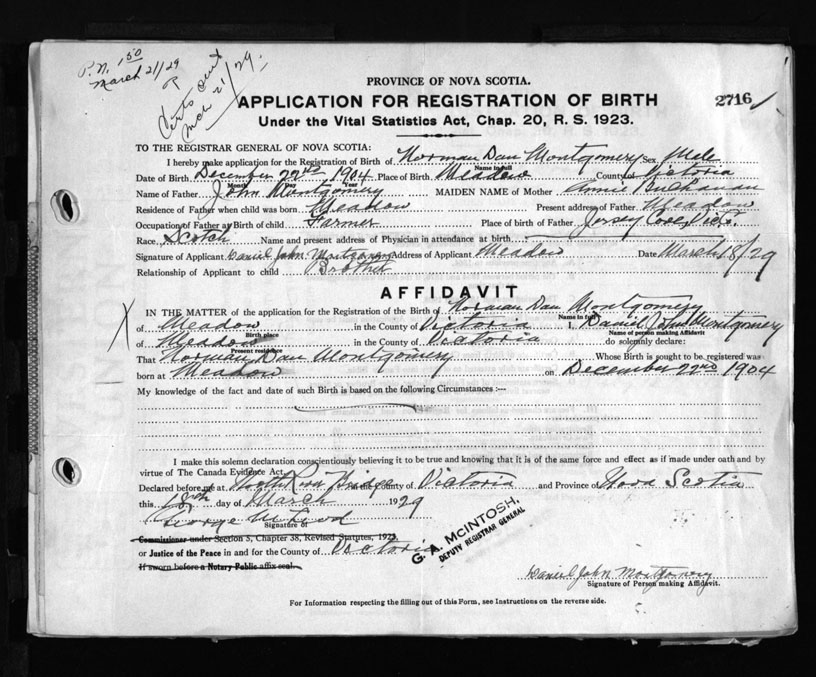 P.N. 1.50
March 21/29
Certs sent
Mch 21/29
PROVINCE OF NOVA SCOTIA.
APPLICATION FOR REGISTRATION OF BIRTH 2716
Under the Vital Statistics Act, Chap. 20, R. S. 1923.
TO THE REGISTRAR GENERAL OF NOVA SCOTIA:
I hereby make application for the Registration of Birth of Norman Dan Montgomery Sex Male
Name in full
Date of Birth December 22nd 1904 Place of Birth Meadow County of Victoria
Month Day Year
Name of Father John Montgomery MAIDEN NAME of Mother Annie Buchanan
Residence of Father when child was born Meadow Present address of Father Meadow
Occupation of Father at Birth of child Farmer Place of birth of Father Jersey Cove, Vict.
Race Scotch Name and present address of Physician in attendance at birth
Signature of Applicant Daniel John Montgomery Address of Applicant Meadow Date March 18/29
Relationship of Applicant to child Brother
AFFIDAVIT
IN THE MATTER of the application for the Registration of the Birth of Norman Dan Montgomery
Name in full
of Meadow in the County of Victoria I, Daniel John Montgomery
Birth place Name of person making Affidavit
of Meadow in the County of Victoria do solemnly declare:
Present residence
That Norman Dan Montgomery Whose Birth is sought to be registered was
born at Meadow on December 22nd 1904
My knowledge of the fact and date of such Birth is based on the following Circumstances :—
I make this solemn declaration conscientiously believing it to be true and knowing that it is of the same force and effect as if made under oath and by
virtue of The Canada Evidence Act.
Declared before me at North River Bridge County of Victoria and Province of Nova Scotia
this 18th day of March 1929
George McLeod
Signature of
Commissioner under Section 5, Chapter 38, Revised Statutes, 1923.
or Justice of the Peace in and for the County of Victoria
If sworn before a Notary Public affix seal.
G. A. McINTOSH,
DEPUTY REGISTRAR GENERAL
Daniel John Montgomery
Signature of Person making Affidavit.
For Information respecting the filling out of this Form, see Instructions on the reverse side.